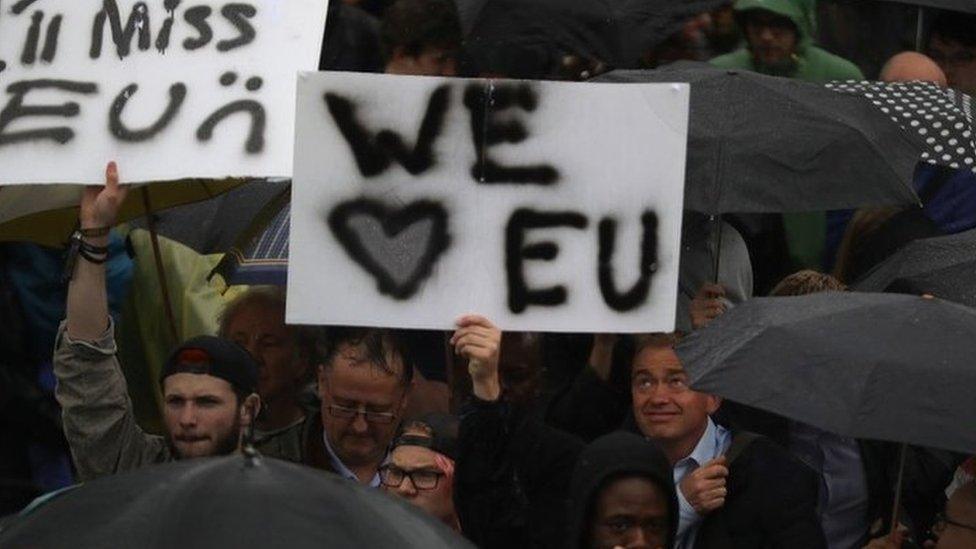 'll Miss
EU ü
WE
♥ EU